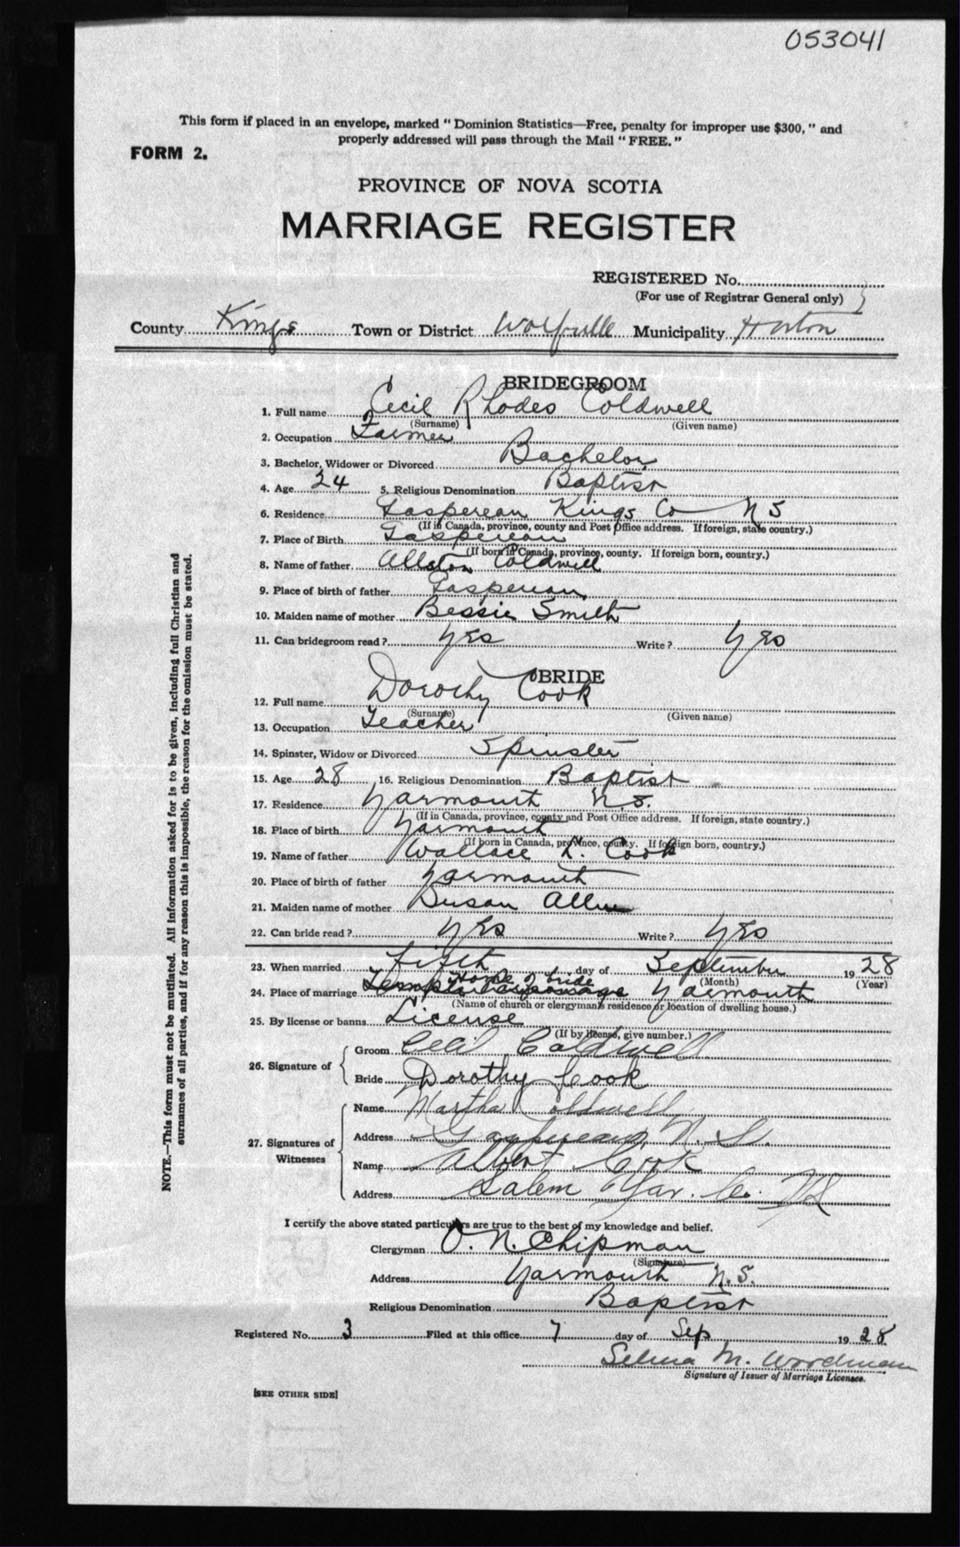 053041
This form if placed in an envelope, marked " Dominion Statistics—Free, penalty for improper use $300, " and
properly addressed will pass through the Mail " FREE. "
FORM 2.
PROVINCE OF NOVA SCOTIA
MARRIAGE REGISTER
REGISTERED No.
(For use of Registrar General only)
County Kings Town or District Wolfville Municipality Horton
BRIDEGROOM
1. Full name Cecil Rhodes Coldwell
(Surname) (Given name)
2. Occupation Farmer
3. Bachelor, Widower or Divorced Bachelor
4. Age 24 5. Religious Denomination Baptist
6. Residence Gaspereau Kings Co N S
(If in Canada, province, county and Post Office address. If foreign, state country.)
7. Place of Birth Gaspereau
(If born in Canada, province, county. If foreign born, country.)
8. Name of father Allston Coldwell
9. Place of birth of father Gaspereau
10. Maiden name of mother Bessie Smith
11. Can bridegroom read ? yes Write ? yes
BRIDE
12. Full name Dorothy Cook
(Surname) (Given name)
13. Occupation Teacher
14. Spinster, Widow or Divorced Spinster
15. Age 28 16. Religious Denomination Baptist
17. Residence Yarmouth N.S.
(If in Canada, province, county and Post Office address. If foreign, state country.)
18. Place of birth Yarmouth
(If born in Canada, province, county. If foreign born, country.)
19. Name of father Wallace L. Cook
20. Place of birth of father Yarmouth
21. Maiden name of mother Susan Allen
22. Can bride read ? yes Write ? yes
23. When married fifth day of September 1928
(Month) (Year)
Home of bride
24. Place of marriage Yarmouth
(Name of church or clergyman's residence or location of dwelling house.)
25. By license or banns License
(If by license, give number.)
26. Signature of
Groom Cecil Coldwell
Bride Dorothy Cook
27. Signatures of Witnesses
Name Martha Coldwell
Address Gaspereau, N. S.
Name Albert Cook
Address Salem Yar. Co. NS
I certify the above stated particulars are true to the best of my knowledge and belief.
Clergyman O. N. Chipman
(Signature)
Address Yarmouth N.S.
Religious Denomination Baptist
Registered No. 3 Filed at this office 7 day of Sep 1928
Selina M. Woodman
Signature of Issuer of Marriage Licenses.
[SEE OTHER SIDE]
NOTE.—This form must not be mutilated. All information asked for is to be given, including full Christian and
surnames of all parties, and if for any reason this is impossible, the reason for the omission must be stated.